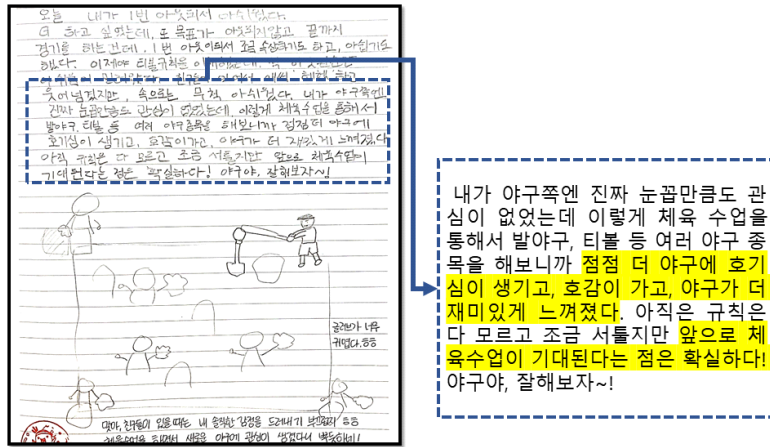 오늘 내가 1번 아웃되서 아쉬웠다.
더 하고 싶었는데, 또 목표가 아웃되지않고 끝까지
경기를 하는건데. 1번 아웃이되서 조금 속상하기도 하고, 아쉽기도
했다. 이제야 티볼규칙을
웃어넘겼지만, 속으로는 무척 아쉬웠다. 내가 야구쪽엔
진짜 눈꼽만큼도 관심이 없었는데, 이렇게 체육수업을 통해서
발야구, 티볼 등 여러 야구종목을 해보니까 점점 더 야구에
호기심이 생기고, 호감이가고, 야구가 더 재밌게 느껴졌다
아직 규칙은 다 모르고 조금 서툴지만 앞으로 체육수업이
기대된다는 점은 확실하다! 야구야, 잘해보자~!
글러브가 너무
귀엽다.ㅎㅎ
맞아, 친구들이 있을 때는 내 솔직한 감정을 드러내기
내가 야구쪽엔 진짜 눈꼽만큼도 관
심이 없었는데 이렇게 체육 수업을
통해서 발야구, 티볼 등 여러 야구 종
목을 해보니까 점점 더 야구에 호기
심이 생기고, 호감이 가고, 야구가 더
재미있게 느껴졌다. 아직은 규칙은
다 모르고 조금 서툴지만 앞으로 체
육수업이 기대된다는 점은 확실하다!
야구야, 잘해보자~!